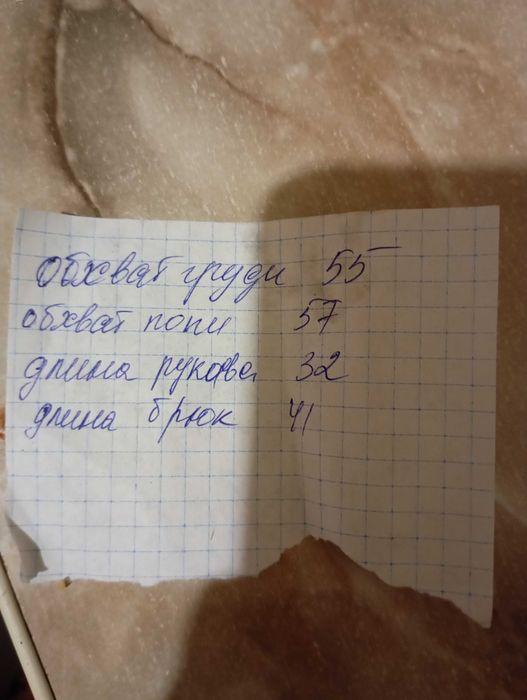 Обхват груди 55
обхват попи 57
длина рукава 32
длина брюк 41